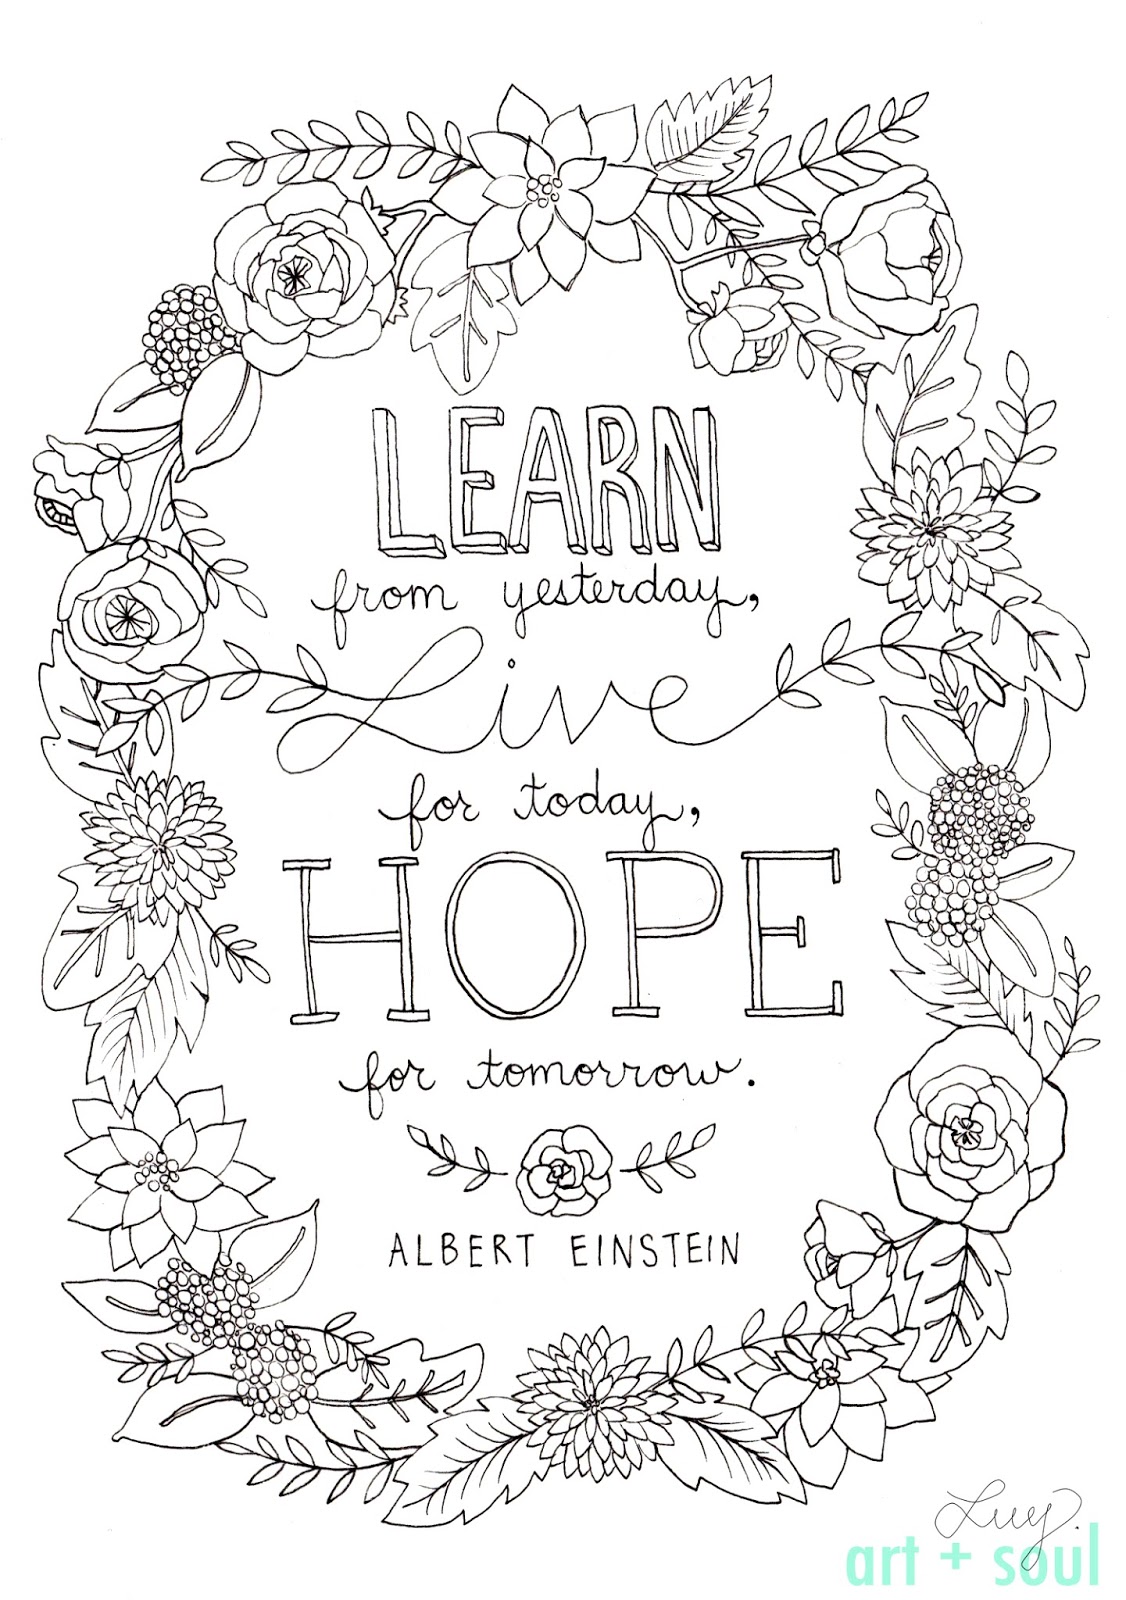 LEARN
from yesterday,
Live
for today,
HOPE
for tomorrow.
ALBERT EINSTEIN
art + soul